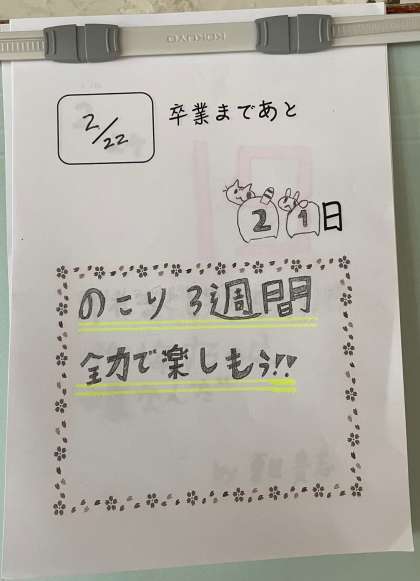 KOKUYO
2/22
卒業まであと
21日
のこり3週間
全力で楽しもう!!